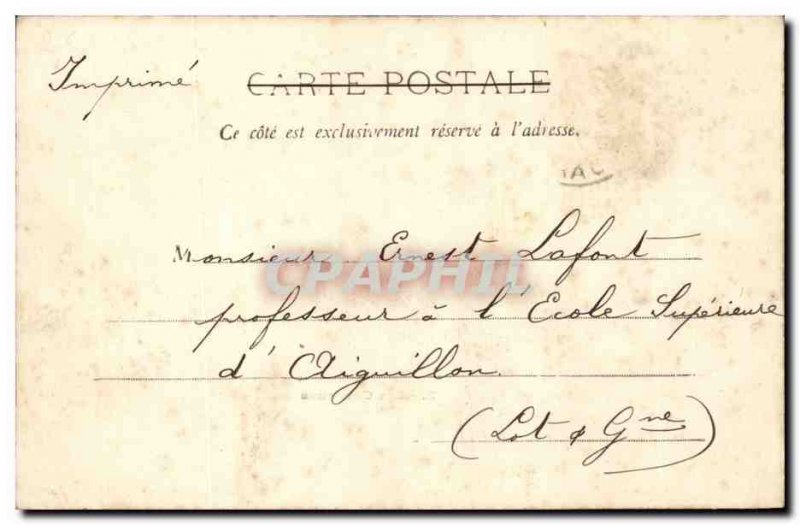 Imprimé
CARTE POSTALE
Ce côté est exclusivement réservé à l'adresse.
Monsieur Ernest Lafont
CPAPHIL
professeur à l'École Supérieure
d'Aiguillon
(Lot & Gne)